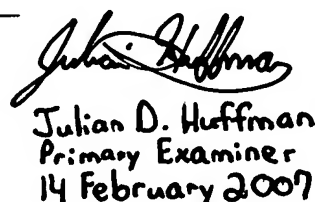 Julian Huffman
Julian D. Huffman
Primary Examiner
14 February 2007